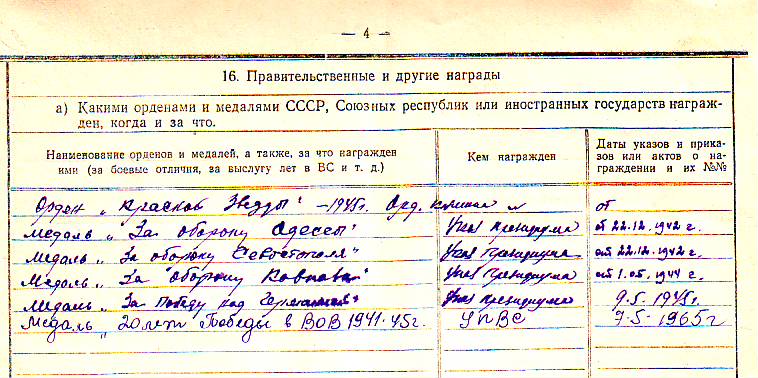 — 4 —
16. Правительственные и другие награды
а) Какими орденами и медалями СССР, Союзных республик или иностранных государств награж-
ден, когда и за что.
Наименование орденов и медалей, а также, за что награжден
ими (за боевые отличия, за выслугу лет в ВС и т. д.)
Кем награжден
Даты указов и прика-
зов или актов о на-
граждении и их №№
Орден „Красной Звезды" – 1945г. Орд. от
Медаль „За оборону Одессы" Указ Президиума от 22.12.1942 г.
Медаль „За оборону Севастополя" Указ Президиума от 22.12.1942 г.
Медаль „За оборону Кавказа" Указ Президиума от 1.05.1944 г.
Медаль „За Победу над Германией" Указ Президиума 9.5.1945г.
Медаль „20 лет Победы в ВОВ 1941-45г. УПВС 7-5-1965г